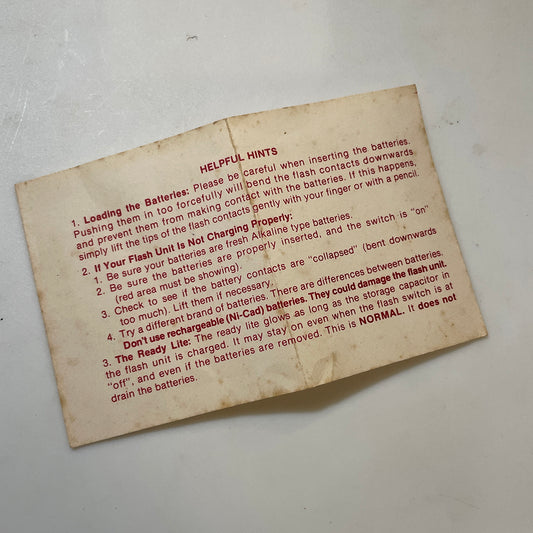 HELPFUL HINTS
1. Loading the Batteries: Please be careful when inserting the batteries.
Pushing them in too forcefully will bend the flash contacts downwards
and prevent them from making contact with the batteries. If this happens,
simply lift the tips of the flash contacts gently with your finger or with a pencil.
2. If Your Flash Unit Is Not Charging Properly:
1. Be sure your batteries are fresh Alkaline type batteries.
2. Be sure the batteries are properly inserted, and the switch is "on"
(red area must be showing).
3. Check to see if the battery contacts are "collapsed" (bent downwards
too much). Lift them if necessary.
4. Try a different brand of batteries. There are differences between batteries.
Don't use rechargeable (Ni-Cad) batteries. They could damage the flash unit.
3. The Ready Lite: The ready lite glows as long as the storage capacitor in
the flash unit is charged. It may stay on even when the flash switch is at
"off", and even if the batteries are removed. This is NORMAL. It does not
drain the batteries.